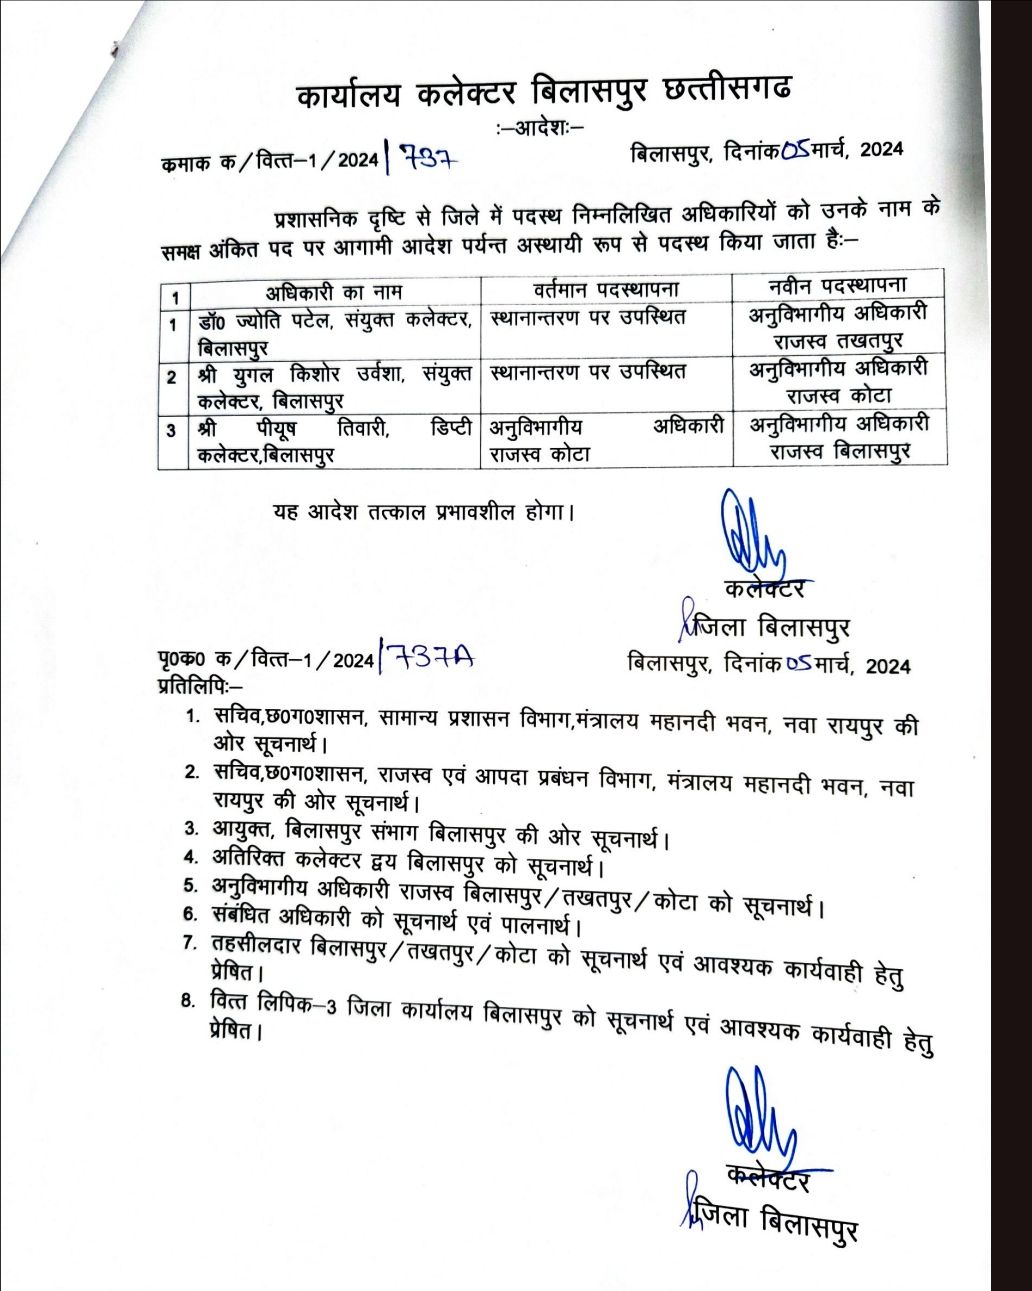 कार्यालय कलेक्टर बिलासपुर छत्तीसगढ
:–आदेशः–
कमाक क/वित्त–1/2024/737 बिलासपुर, दिनांक05मार्च, 2024
प्रशासनिक दृष्टि से जिले में पदस्थ निम्नलिखित अधिकारियों को उनके नाम के
समक्ष अंकित पद पर आगामी आदेश पर्यन्त अस्थायी रूप से पदस्थ किया जाता हैः–
1 अधिकारी का नाम वर्तमान पदस्थापना नवीन पदस्थापना
1 डॉ0 ज्योति पटेल, संयुक्त कलेक्टर, स्थानान्तरण पर उपस्थित अनुविभागीय अधिकारी
बिलासपुर राजस्व तखतपुर
2 श्री युगल किशोर उर्वशा, संयुक्त स्थानान्तरण पर उपस्थित अनुविभागीय अधिकारी
कलेक्टर, बिलासपुर राजस्व कोटा
3 श्री पीयूष तिवारी, डिप्टी अनुविभागीय अधिकारी अनुविभागीय अधिकारी
कलेक्टर,बिलासपुर राजस्व कोटा राजस्व बिलासपुर
यह आदेश तत्काल प्रभावशील होगा।
कलेक्टर
जिला बिलासपुर
पृ0क0 क/वित्त–1/2024/737A बिलासपुर, दिनांक05मार्च, 2024
प्रतिलिपिः–
1. सचिव,छ0ग0शासन, सामान्य प्रशासन विभाग,मंत्रालय महानदी भवन, नवा रायपुर की
ओर सूचनार्थ।
2. सचिव,छ0ग0शासन, राजस्व एवं आपदा प्रबंधन विभाग, मंत्रालय महानदी भवन, नवा
रायपुर की ओर सूचनार्थ।
3. आयुक्त, बिलासपुर संभाग बिलासपुर की ओर सूचनार्थ।
4. अतिरिक्त कलेक्टर द्वय बिलासपुर को सूचनार्थ।
5. अनुविभागीय अधिकारी राजस्व बिलासपुर/तखतपुर/कोटा को सूचनार्थ।
6. संबंधित अधिकारी को सूचनार्थ एवं पालनार्थ।
7. तहसीलदार बिलासपुर/तखतपुर/कोटा को सूचनार्थ एवं आवश्यक कार्यवाही हेतु
प्रेषित।
8. वित्त लिपिक–3 जिला कार्यालय बिलासपुर को सूचनार्थ एवं आवश्यक कार्यवाही हेतु
प्रेषित।
कलेक्टर
जिला बिलासपुर